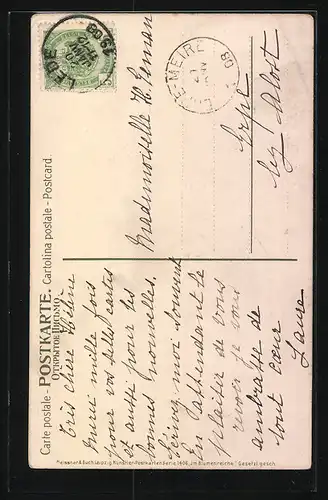 Carte postale - POSTKARTE - Cartolina postale - Postcard
ОТКРЫТОЕ ПИСЬМО
LEDE
1908
Mademoiselle H.
Erpe
lez Alost
Très chère Hélène
merci mille fois
pour vos belles cartes
et aussi pour les
bonnes nouvelles.
Ecrivez moi souvent
En attendant le
plaisir de vous
revoir je vous
embrasse de
tout cœur
Laure
Meissner & Buch, Leipzig Künstler-Postkarten Serie 1608 „Im Blumenreiche" Gesetzl. gesch.